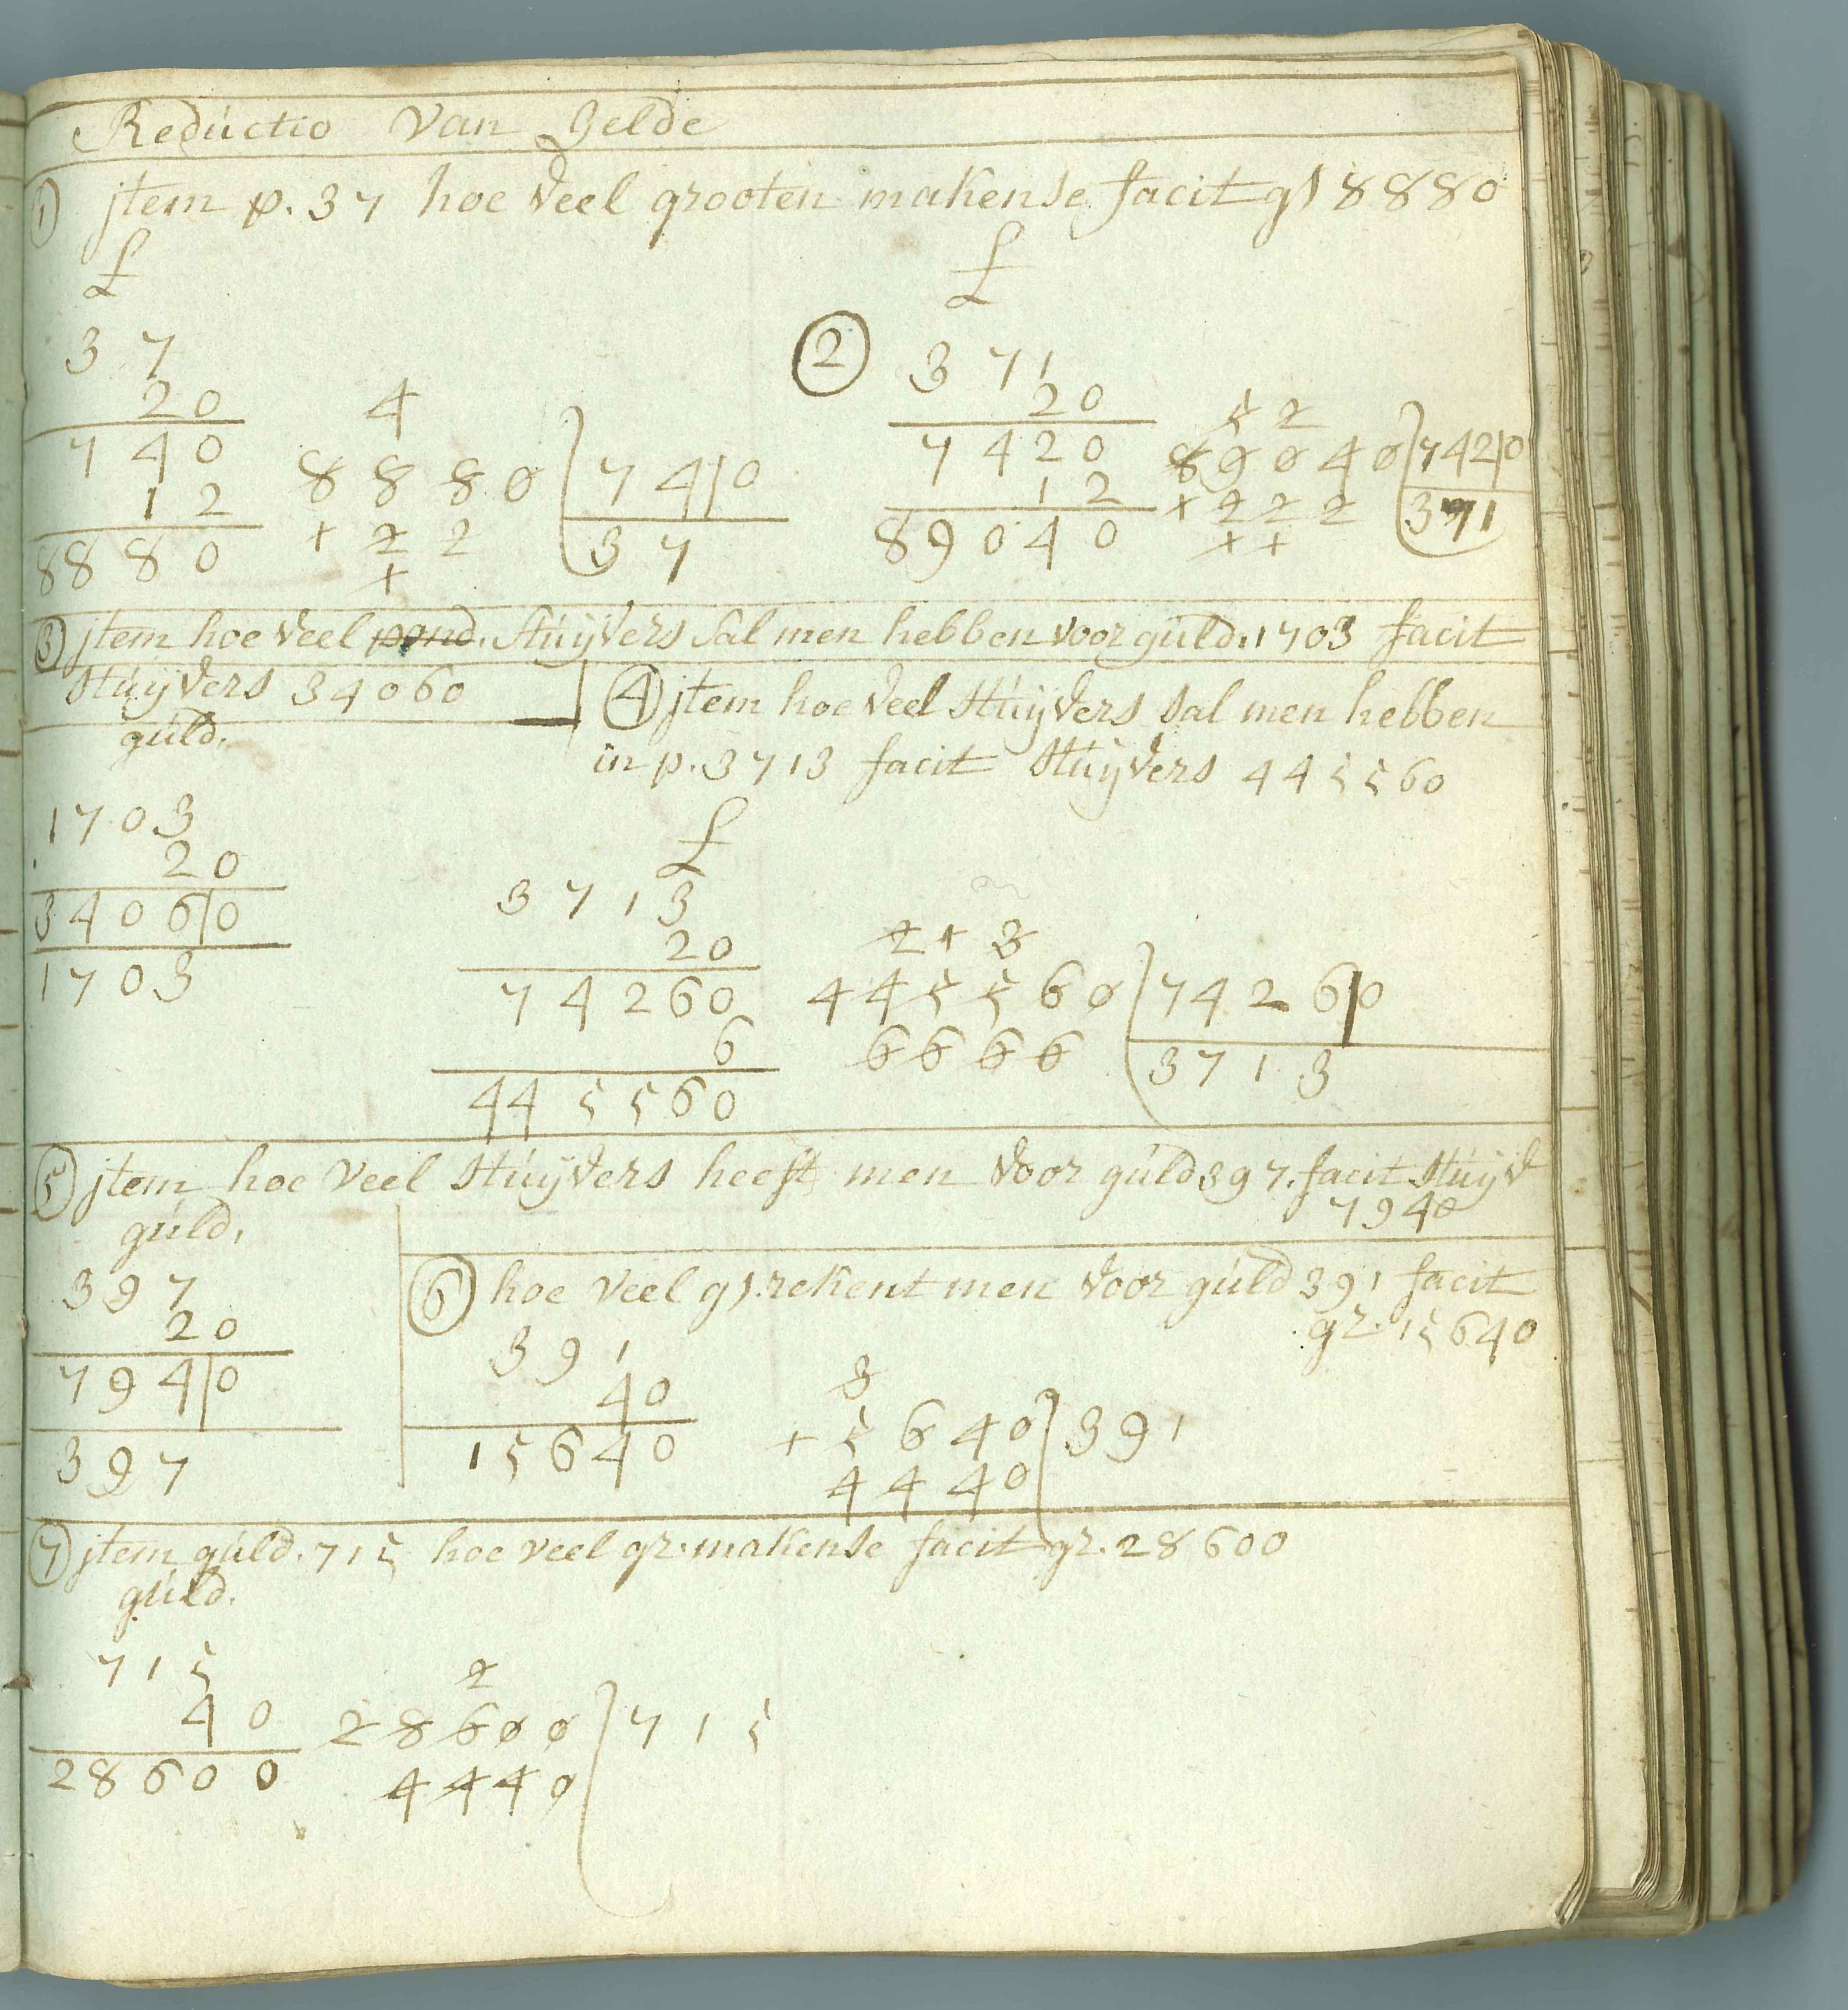 Redúctio Van Gelde
1 jtem p. 37 hoe veel grooten makense facit gs 8880
£
37
20
740
12
8880
4
8880 ) 74|0
+ 2 2 37
+
£
2 371
20
7420
12
89040
5 2
89040 ) 742|0
+ 2 2 2 371
+ +
3 jtem hoe veel pond. Stúÿvers Sal men hebben voor gúld. 1703 facit
Stúÿvers 34060
gúld.
1703
20
3406|0
1703
4 jtem hoe veel Stúÿvers Sal men hebben
in p. 3713 facit Stúÿvers 445560
£
3713
20
74260
6
445560
2 1 3
445560 ) 7426|0
6666 3713
5 jtem hoe veel Stúÿvers heeft men voor gúld 397. facit Stúÿv
7940
gúld,
397
20
794|0
397
6 hoe veel gs. rekent men voor gúld 391 facit
gr. 15640
391
40
15640
3
+5640 ) 391
4440
7 jtem gúld. 715 hoe veel gr. makense facit gr. 28600
gúld.
715
40
28600
2
28600 ) 715
4440